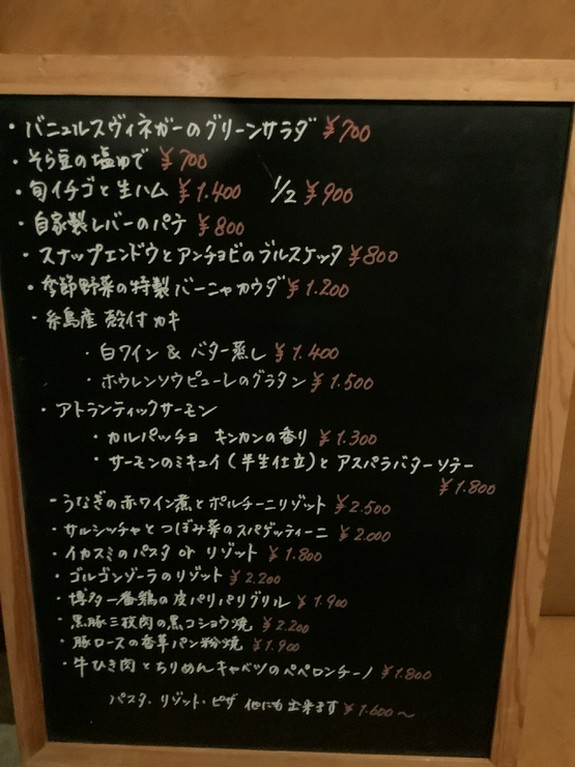 ・バニュルスヴィネガーのグリーンサラダ ¥700
・そら豆の塩ゆで ¥700
・旬イチゴと生ハム ¥1.400 1/2 ¥900
・自家製レバーのパテ ¥800
・スナップエンドウとアンチョビのブルスケッタ ¥800
・季節野菜の特製バーニャカウダ ¥1.200
・糸島産 殻付カキ
・白ワイン & バター蒸し ¥1.400
・ホウレンソウピューレのグラタン ¥1.500
・アトランティックサーモン
・カルパッチョ キンカンの香り ¥1.300
・サーモンのミキュイ(半生仕立)と アスパラバターソテー
¥1.800
・うなぎの赤ワイン煮とポルチーニリゾット ¥2.500
・サルシッチャとつぼみ菜のスパゲッティーニ ¥2.000
・イカスミのパスタ or リゾット ¥1.800
・ゴルゴンゾーラのリゾット ¥2.200
・博多一番鶏の皮パリパリグリル ¥1.900
・黒豚三枚肉の黒コショウ焼 ¥2.200
・豚ロースの香草パン粉焼 ¥1.900
・牛ひき肉とちりめんキャベツのペペロンチーノ ¥1.800
パスタ・リゾット・ピザ 他にも出来ます ¥1.600〜